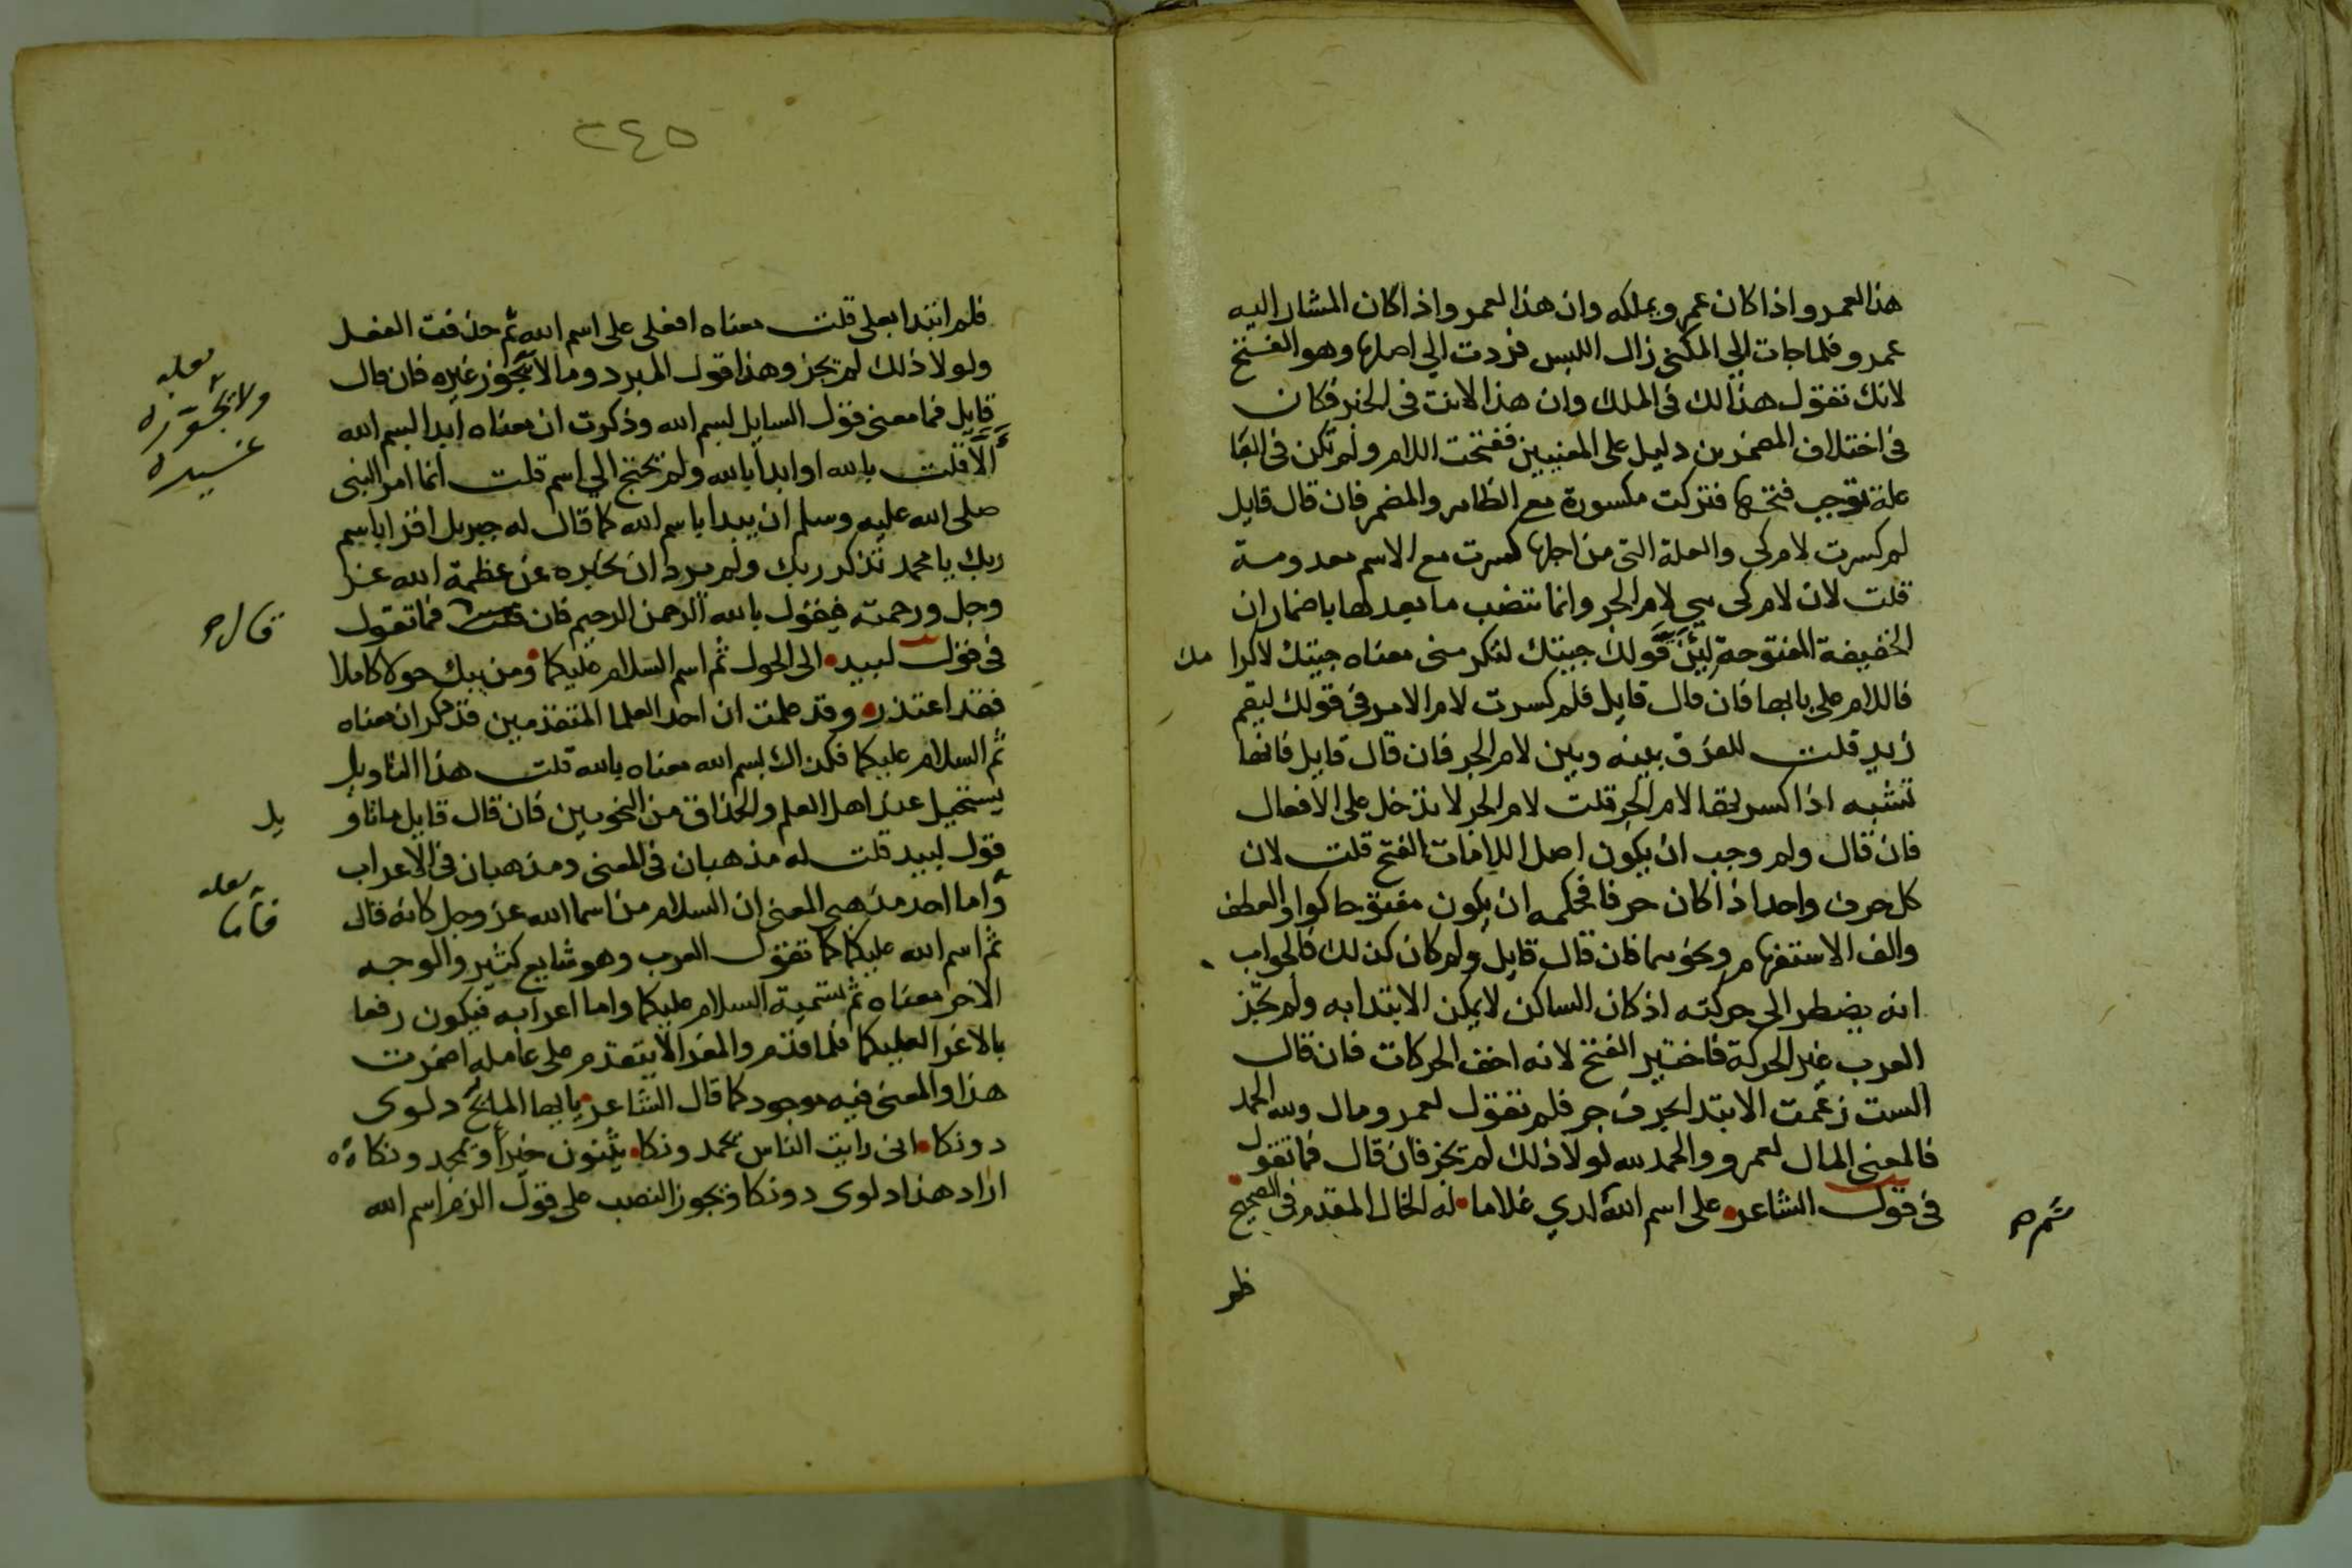 هذا العمرو اذا كان عمرو يملكه وان هذا لعمرو اذا كان المشار اليه
عمرو فلما جات الي المكني زال اللبس فردت الي اصلها وهو الفتح
لانك تقول هذا لك في الملك وان هذا لانت في الخبر فكان
في اختلاف المضمرين دليل على المعنيين ففتحت اللام ولم تكن في البا
علة توجب فتحها فتركت مكسورة مع الظاهر والمضمر فان قال قايل
لم كسرت لام كي والعلة التي من اجلها كسرت مع الاسم معدومة
قلت لان لام كي هي لام الجر وانما تنتصب ما بعدها باضمار ان
الخفيفة المفتوحة قولك جيتك لتكرمني معناه جيتك لاكرامك
فاللام على بابها فان قال قايل فلم كسرت لام الامر في قولك ليقم
زيد قلت للفرق بينه وبين لام الجر فان قال قايل فانها
تشبه اذا كسرتها لام الجر قلت لام الجر لا تدخل على الافعال
فان قال ولم وجب ان يكون اصل اللامات الفتح قلت لان
كل حرف واحد اذا كان حرفا فحكمه ان يكون مفتوحا كواو العطف
والف الاستفهام ونحوهما فان قال قايل ولم كان كذلك فالجواب
انه يضطر الى حركته اذ كان الساكن لا يمكن الابتدا به ولم تجز
العرب غير الحركة فاختير الفتح لانه اخف الحركات فان قال
الست زعمت الابتدا بحرف جر فلم تقول لعمرو مال ولله الحمد
فالمعنى المال لعمرو والحمد لله لولا ذلك لم تجز فان قال فما تقول
في قول الشاعر على اسم الله لدي غلاما له الخال المقدم في الصحيح
ظهر
فلم ابتدا بعلى قلت معناه افعلى على اسم الله ثم حذفت الفعل
ولولا ذلك لم تجز وهذا قول المبرد وما لا يجوز غيره فان قال
قايل فما معنى قول السايل لبسم الله وذكرت ان معناه ابدا بسم الله
الا قلت بالله او ابدا بالله ولم تحتج الي اسم قلت انما امر النبي
صلى الله عليه وسلم ان يبدا باسم الله كما قال له جبريل اقرا باسم
ربك يا محمد تذكر ربك ولم يرد ان تخبره عن عظمة الله عز
وجل ورحمته فيقول بالله الرحمن الرحيم فان قلت فما تقول
في قول لبيد الى الحول ثم اسم السلام عليكما ومن يبك حولا كاملا
فقد اعتذر وقد علمت ان احد العلما المتقدمين قد ذكر ان معناه
ثم السلام عليكما فكذاك لبسم الله معناه بالله قلت هذا التاويل
يستحيل عند اهل العلم والحذاق من النحويين فان قال قايل ما تاويل
قول لبيد قلت له مذهبان في المعنى ومذهبان في الاعراب
واما احد مذهبي المعنى ان السلام من اسما الله عز وجل كانه قال
ثم اسم الله عليكما كما تقول العرب وهو شايع كثير والوجه
الاخر معناه ثم تسمية السلام عليكما واما اعرابه فيكون رفعا
بالاغرا لعليكما فلما قدم والمغرا لا يتقدم على عامله اضمرت
هذا والمعنى فيه موجود كما قال الشاعر يا ايها المايح دلوى
دونكا انى رايت الناس يحمدونكا يثنون خيرا ويمجدونكا
اراد هذا دلوى دونكا ويجوز النصب على قول الزم اسم الله
٢٤٥
لعله
ولا يجوز
غيره
قال
يل
لعله
فاما